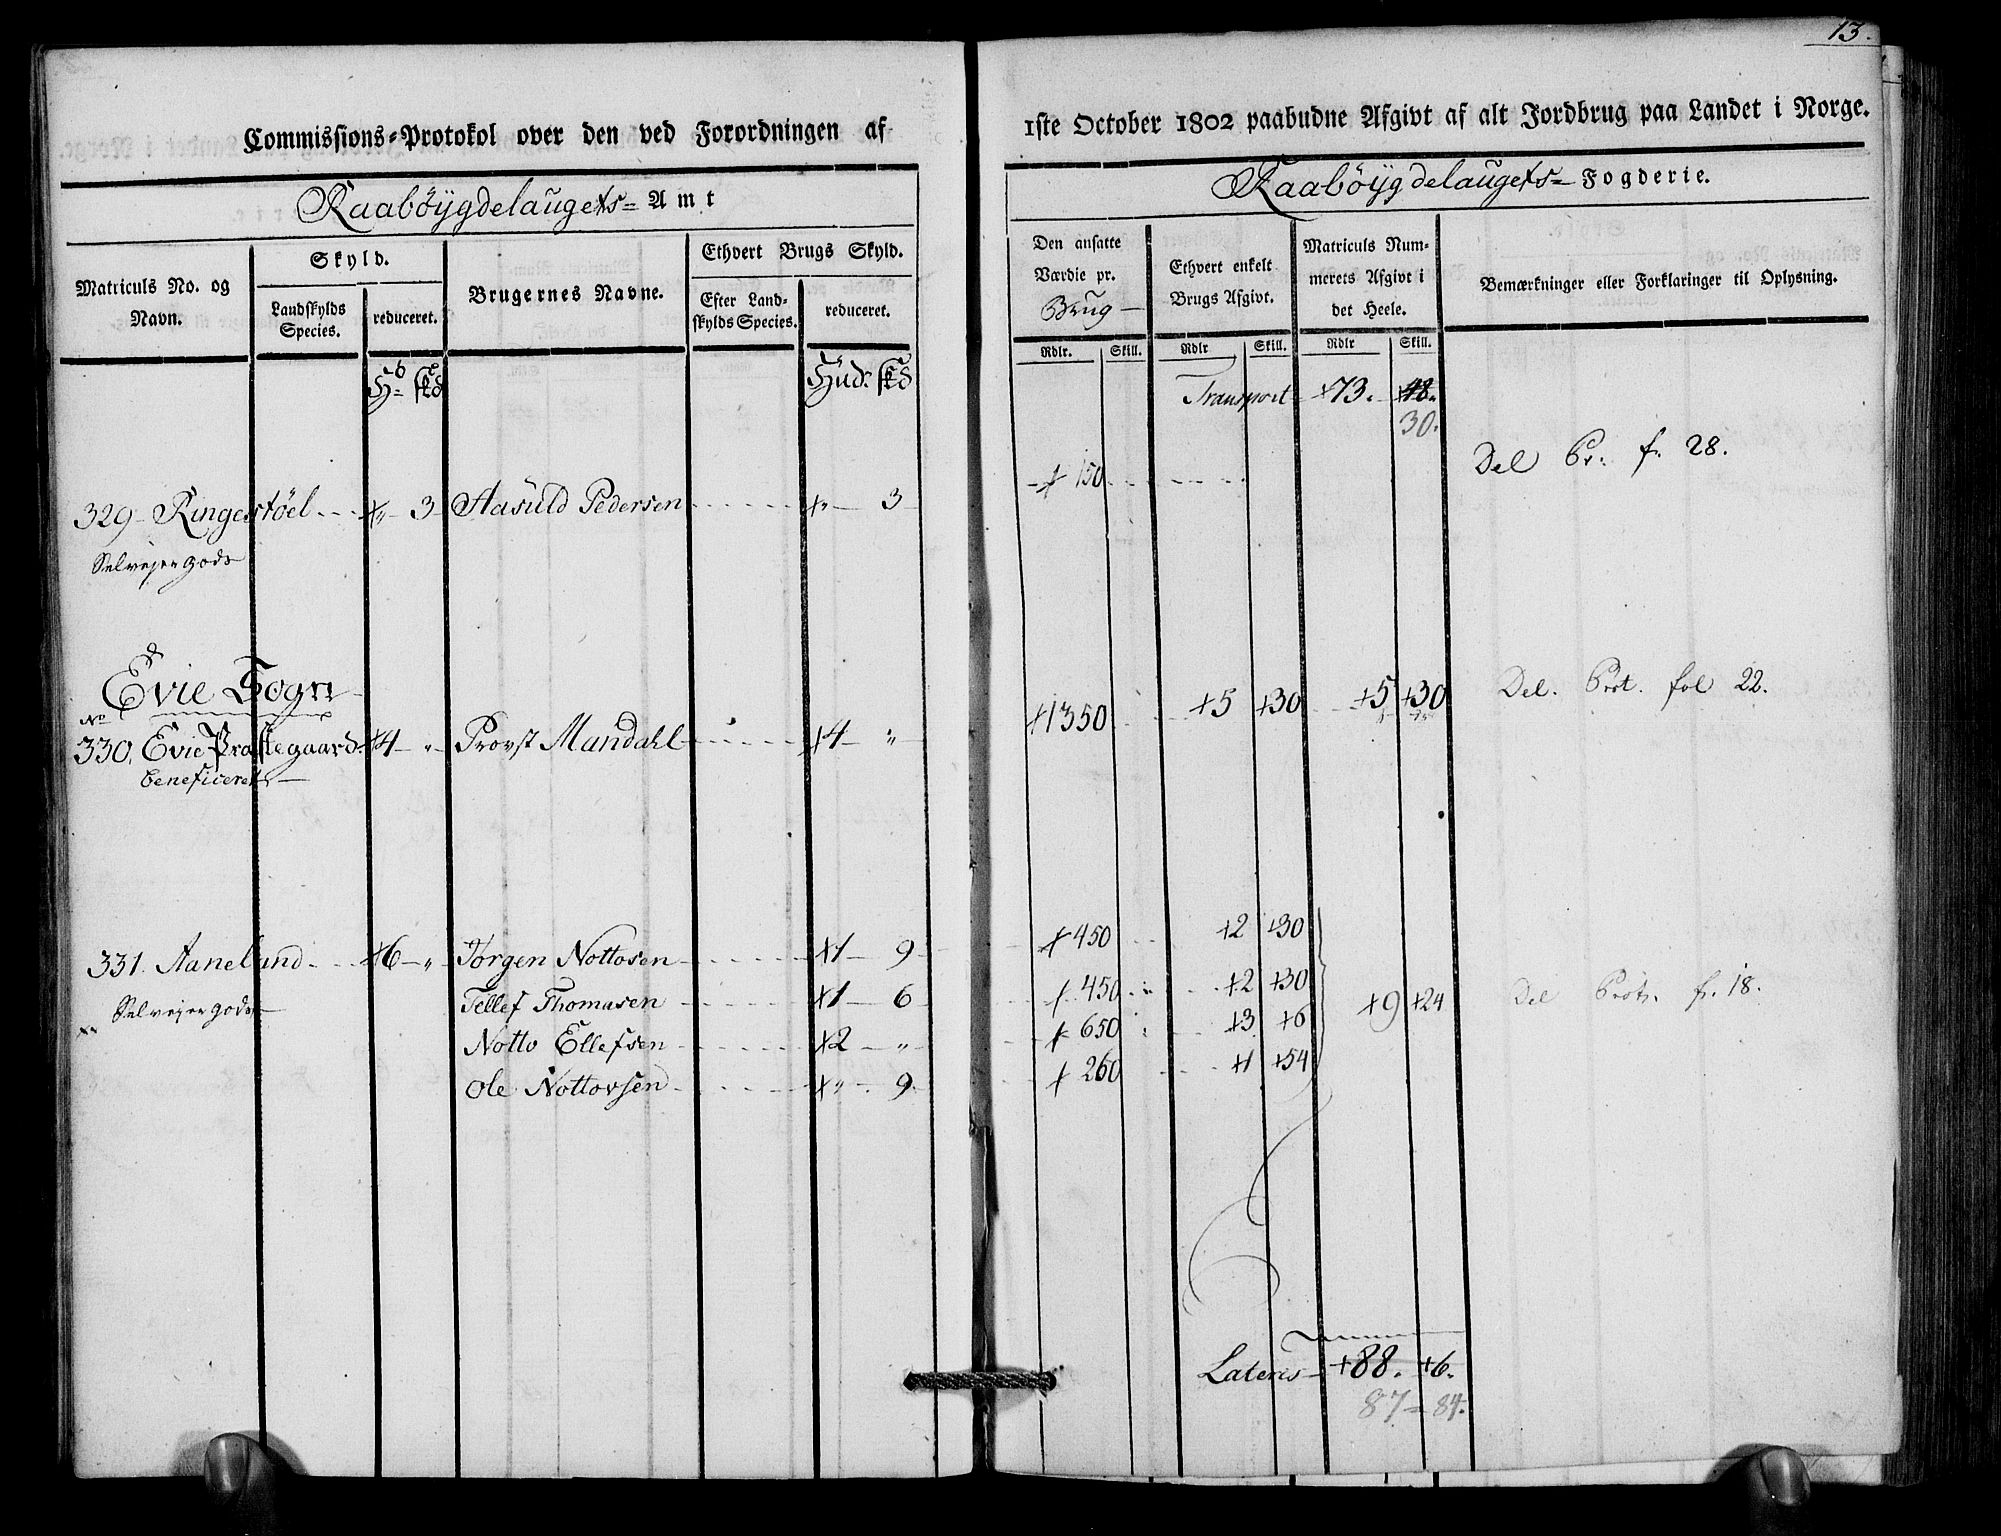 13.
Commissions=Protokol over den ved Forordningen af
1ste October 1802 paabudne Afgivt af alt Jordbrug paa Landet i Norge.
Raabøygdelaugets= Amt
Raabøygdelaugets= Fogderie.
Matriculs No. og Navn.
Skyld.
Landskylds Species.
reduceret.
Brugernes Navne.
Ethvert Brugs Skyld.
Efter Landskylds Species.
reduceret.
Den ansatte Værdie pr. Brug
Ethvert enkelt Brugs Afgivt.
Matriculs Nummerets Afgivt i det Heele.
Bemærkninger eller Forklaringer til Oplysning.
Rdlr. Skill. Rdlr Skill. Rdlr Skill.
Hud: skd
Transport +73. 48.
30.
329 Ringestøel 3 Aasuld Pedersen 3 150 Del Pr. f. 28.
Selveyergods
Evie Sogn
No
330. Evie Præstegaard +4 " Provst Mandahl +4 " +1350 +5 +30 +5 +30 Del. Prot. fol 22.
beneficeret
331. Aanelund +6 " Jørgen Nottosen +1 9 +450 +2 +30
Selveyergods Tellef Thomasen +1 6 +450 +2 +30 +9 +24 Del Prot. f. 18.
Notto Ellefsen +2 " +650 +3 +6
Ole Nottovsen +" 9. +260 +1 +54
Lateris +88. +6.
87 = 84.